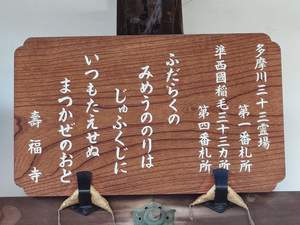 多摩川三十三霊場
第一番札所
準西國稲毛三十三カ所
第四番札所
ふだらくの
みめうののりは
じゅふくじに
いつもたえせぬ
まつかぜのおと
壽福寺